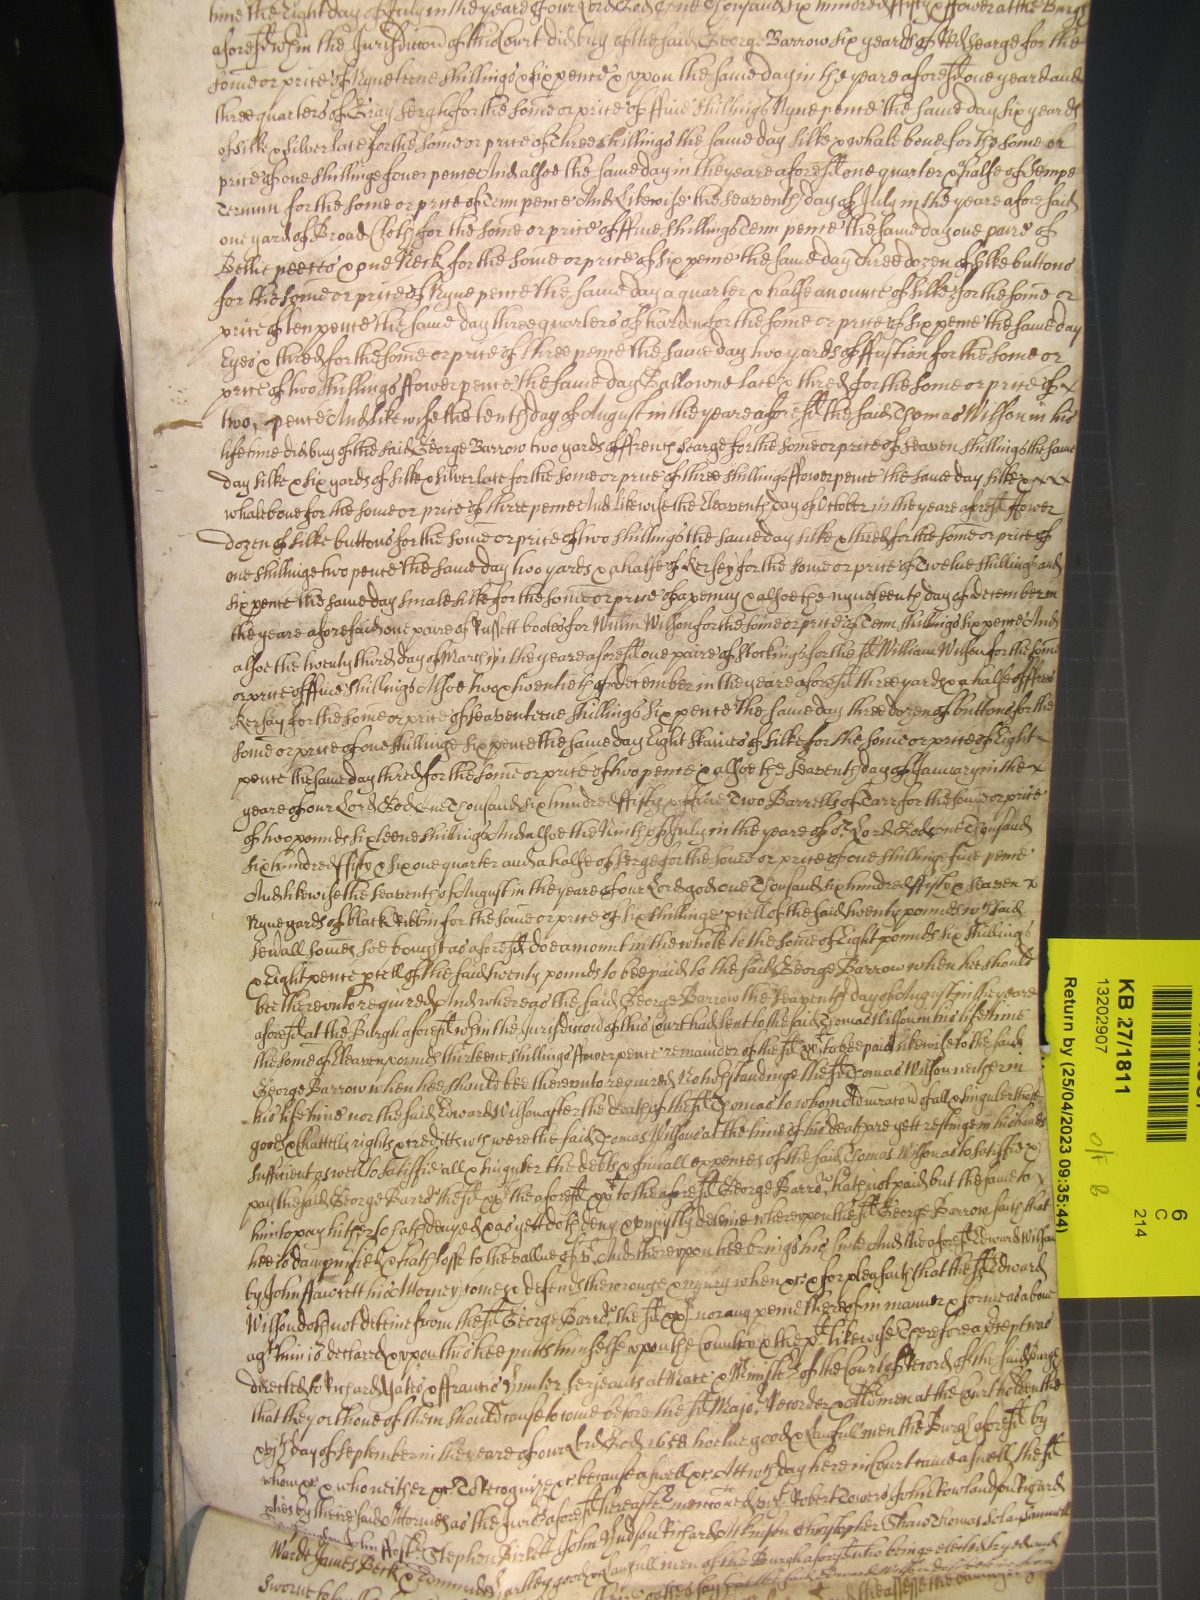 time the Eight day of July in the yeare of our Lord God One Thousand six hundred fifty & ffower at the Burgh
aforesd wthin the Jurisdiccon of this Court did buy of the said George Barrow six yeards of Red Searge for the
some or price of Nyneteene shillings & six pence & vpon the same day in the yeare aforesd one yeard and
three quarters of Gray Sergh for the some or price of ffiue shillings Nyne pence the same day six yeards
of silke & silver lace for the some or price of three shillings the same day silke & whale bone for the some or
price of one shillinge fower pence And alsoe the same day in the yeare aforesd one quarter & halfe of Sempe
Ternum for the some or price of Tenn pence And Likewise the seaventh day of July in the yeare aforesaid
one yard of Broad Cloth for the some or price of ffiue shillings Tenn pence the same day one paire of
Bellie peeces & one Neck for the some or price of six pence the same day Three dozen of silke buttons
for the some or price of Nyne pence the same day a quarter & halfe an ounce of silke for the some or
price of ten pence the same day three quarters of harden for the some or price of six pence the same day
Eyes & thred for the some or price of three pence the same day two yards of ffustion for the some or
price of two shillings ffower pence the same day Gallowne lace & thred for the some or price of x
two pence And likewise the tenth day of August in the yeare aforesd the said Thomas Willson in his
life time did buy of the said George Barrow two yards of ffrench Searge for the some or price of seaven shillings the same
day silke & six yards of silke & silver lace for the some or price of three shillings ffower pence the same day silke & x x x
whalebone for the some or price of three pence And likewise the Eleaventh day of October in the yeare aforesd ffower
dozen of silke buttons for the some or price of two shillings the same day silke & thred for the some or price of
one shillinge two pence the same day two yards & a halfe of Kersey for the some or price of Twelue shillings and
six pence the same day smale silke for the some or price of a penny & alsoe the nyneteenth day of December in
the yeare aforesaid one paire of Russett bootes for Willm Wilson for the some or price of Tenn shillings six pence And
alsoe the twenty third day of March in the yeare aforesd one paire of stockings for the sd William Wilson for the some
or price of ffiue shillings Alsoe the twentieth of December in the yeare aforesd three yards & a halfe of
Kersay for the some or price of seaventeene shillings six pence the same day three dozen of buttons for the
some or price of one shillinge six pence the same day Eight skaines of silke for the some or price of Eight
pence the same day thred for the some or price of two pence & alsoe the seaventh day of January in the x
yeare of our Lord God One Thousand six hundred ffifty & ffiue Two Barrells of Tarr for the some or price
of two pounds sixteene shillings And alsoe the Ninth of July in the yeare of or Lord God one Thousand
six hundred ffifty & six one quarter and a halfe of Serge for the some or price of one shillinge fiue pence
And likewise the seaventh of August in the yeare of our Lord god one Thousand six hundred ffifty & seaven x
Nyne yards of black Ribbin for the some or price of six shillinge pcell of the said twenty pounds wch said
sevall somes soe bought as aforesd doe amount in the whole to the some of Eight pounds six shillings
& Eight pence pcell of the said twenty pounds to bee paid to the said George Barrow when hee should
bee therevnto required And whereas the said George Barrow the seaventh day of August in the yeare
aforesd at the Burgh aforesd wthin the Jurisdiccon of this Court had lent to the said Thomas Wilson in his life time
the some of Eleaven pounds thirteene shillings ffower pence remainder of the sd xxli to bee paid likewise to the said
George Barrow when hee should bee therevnto required Notwthstandinge the sd Thomas Wilson neither in
his life time nor the said Edward Wilson after the death of the sd Thomas to whom Administracon of all & singuler those
goods & chattells rights & creditts wch were the said Thomas Wilsons at the time of his death are yett restinge in his hands
sufficient as well to satisfie all & singuler the debts & funerall expences of the said Thomas Wilson as to satisfie &
pay the said George Barrow the sd xxli the aforesd xxli to the aforesd George Barrow hath not paid but the same to
him to pay hitherto hath denyed & as yett doth deny & vniustly deteine wherevpon the sd George Barrow saith that
hee is dampnified & hath losse to the vallue of vli And therevpon hee brings his suite And the aforesd Edward Wilson
by John ffawcett his Attorney comes & defends the wronge & iniury when &c & for plea saith that the sd Edward
Wilson doth not deteine from the sd George Barrow the sd xxli nor any penie thereof in manner & forme as above
agt him is declared & vpon this hee putts himselfe vpon the Country & the plt likewise Therefore a precept was
directed to Richard & ffrancis serjeants at Mace & Ministers of the Court of Record of the said Burgh
that they or th one of them should cause to come before the sd Major Recorder & Aldermen at the Court holden the
xvijth day of September in the yeare of our Lord God 1658 twelue good & Lawfull men of the Burgh aforesd by
whom &c & who neither &c To Recognize &c because aswell &c Att wch day here in Court came aswell the sd
pties by there said Attorneys as the Jurors aforesd hereafter mentioned vizt Robert Towers John Rowlandson
John Stephen Birkett John Hudson Richard Atkinson Christopher Shaw Thomas
Warde James Beck & Edmund good & lawfull men of the Burgh aforesd who beinge elected tryed and
sworne
KB 27/1811
13202907
Return by (25/04/2023 09:35:44)
6
C
214
O/F B